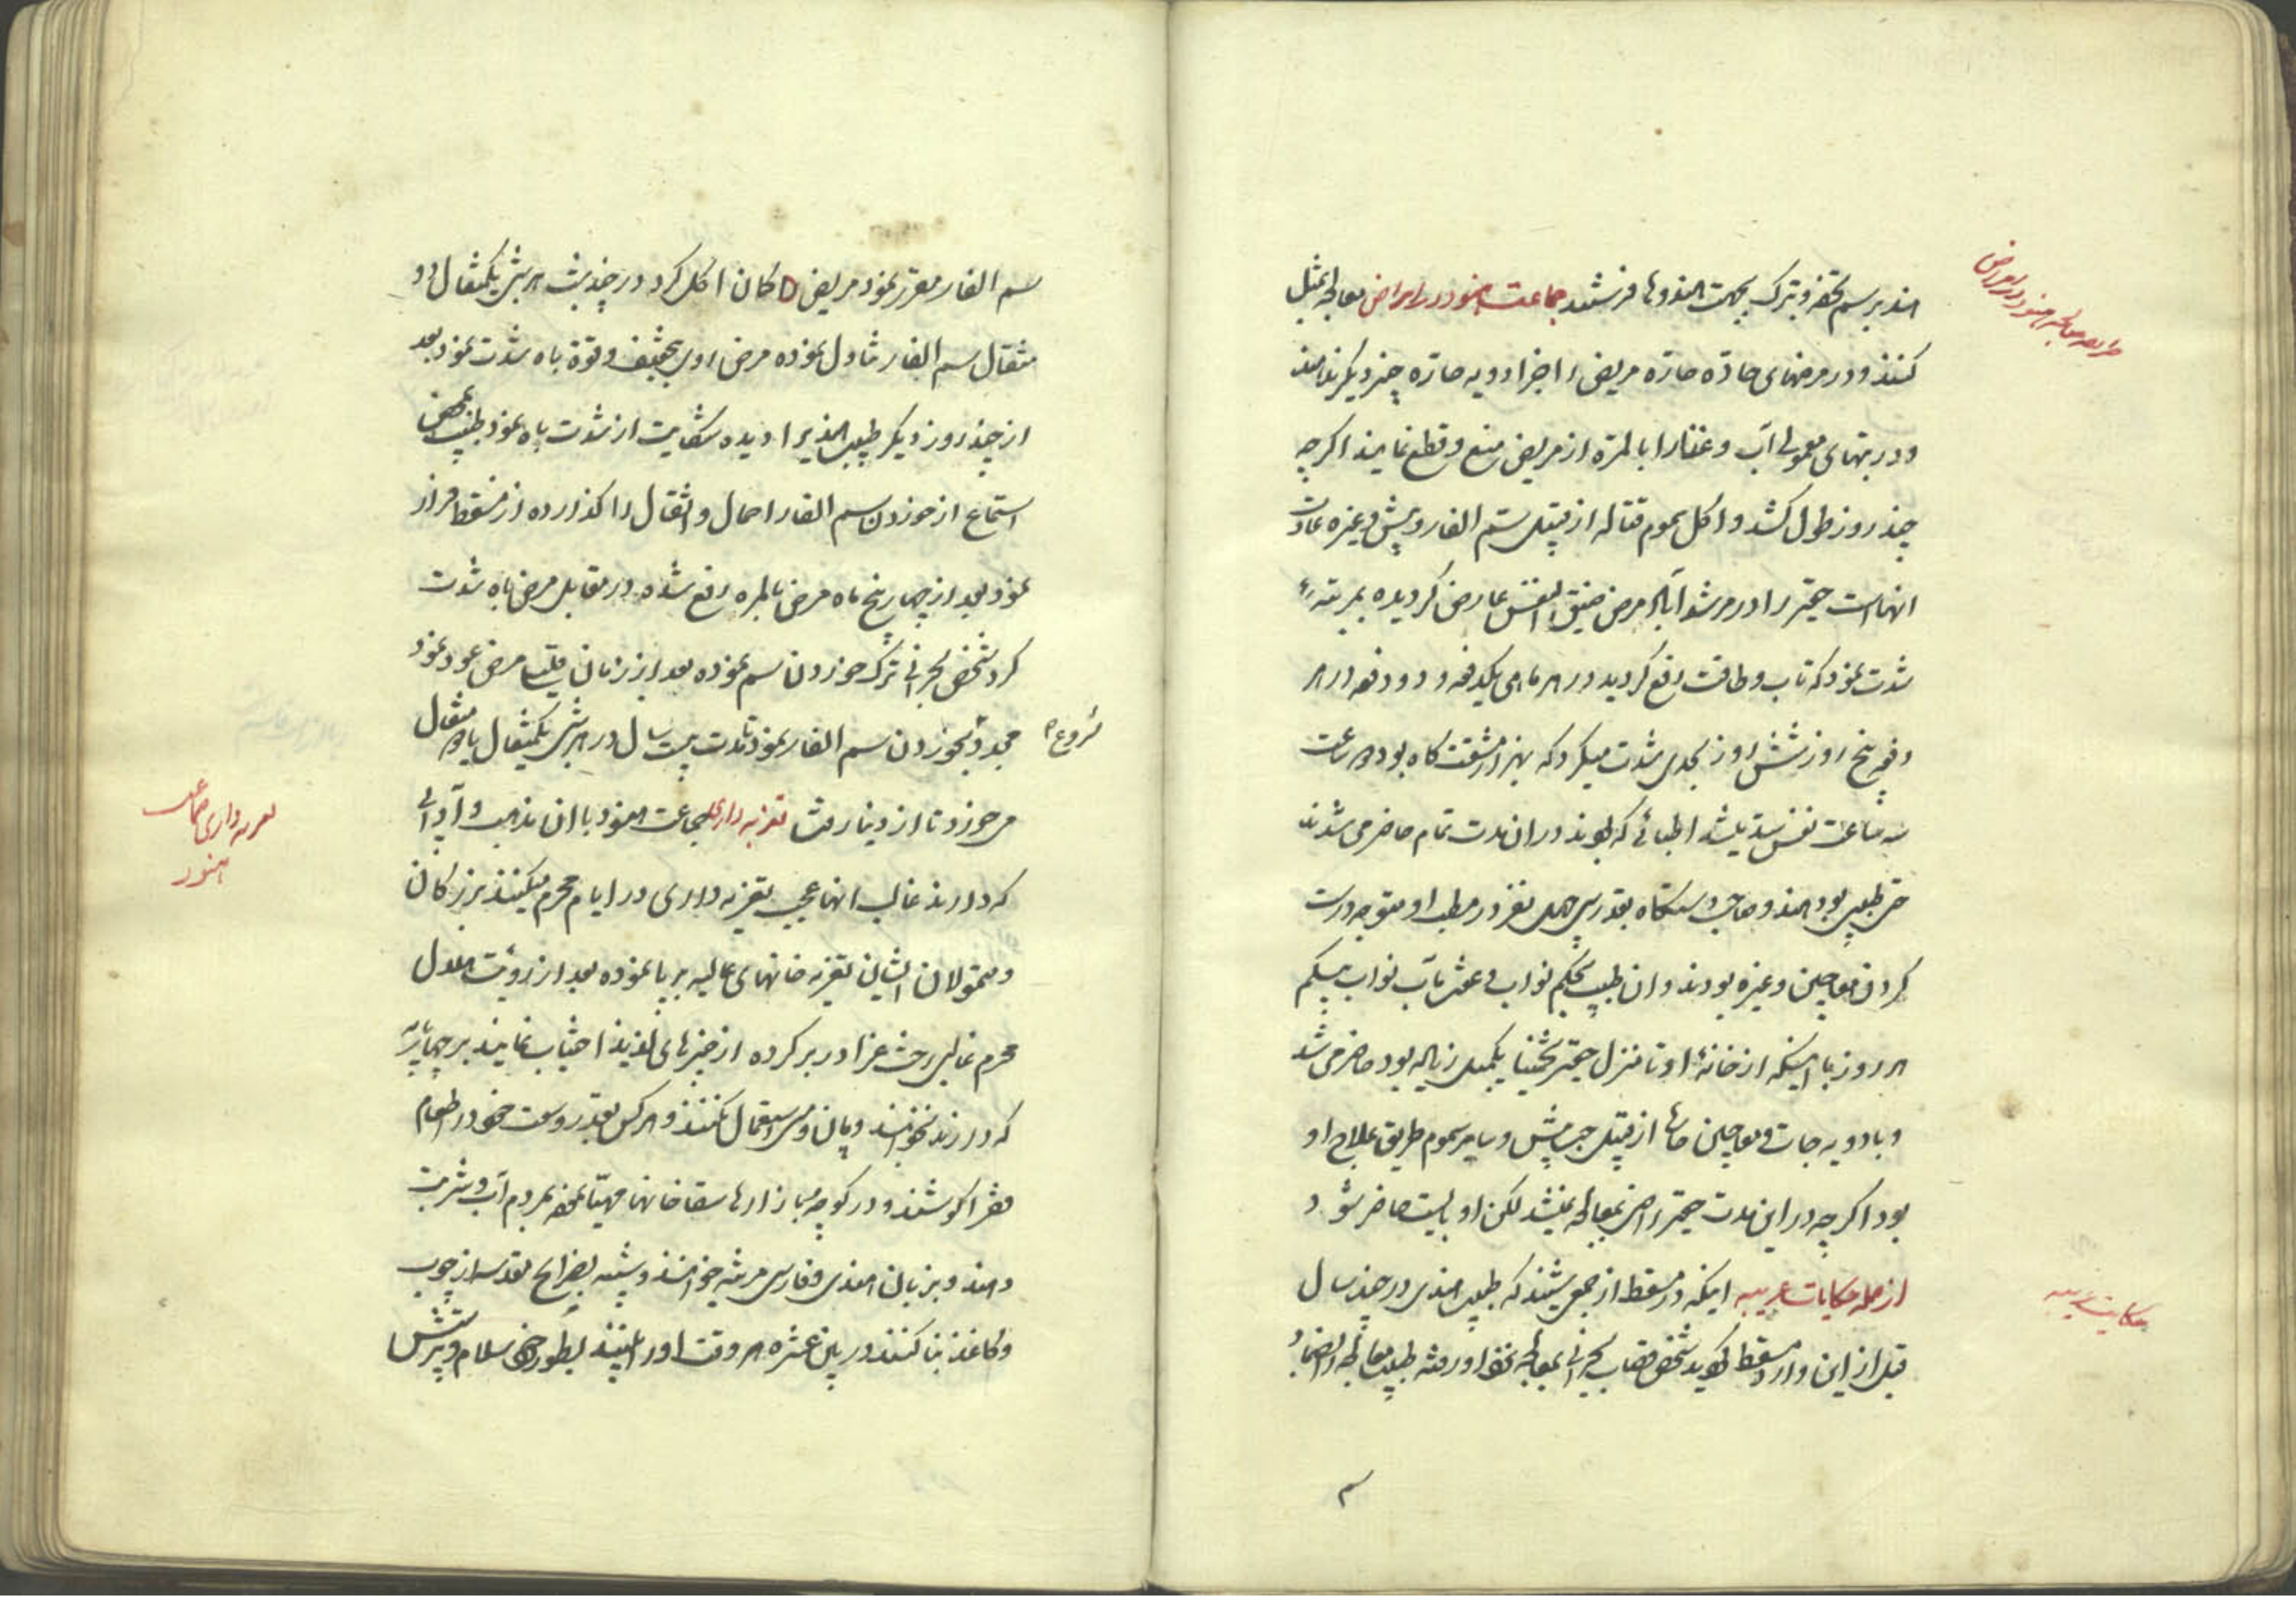 طریقه معالجه هنود در امراض
اند برسم تحفه و تبرک بجهت هندوها فرستند جماعت هنود در امراض معالجه بمثل
کنند و در مرضهای حادّه حارّه مریض را جز ادویه حارّه چیز دیگر ندهند
و در تبهای معمولی آب و غذا را بالمرّه از مریض منع و قطع نمایند اگرچه
چند روز طول کشد و اکل سموم قتاله از قبیل سم الفار و بیش و غیره عادت
انهاست حقیر را در مرشدآباد مرض ضیق النفس عارض گردیده بمرتبهٔ
شدت نمود که تاب و طاقت رفع گردید در هر ماهی یکدفعه و دو دفعه در هر
دفعه پنج روز شش روز بحدی شدت میکرد که بهزار مشقت گاه بود در ساعت
سه ساعت نفس بند میشد اطبائی که بودند در ان مدت تمام حاضر می شدند
حتی طبیبی بود هندو صاحب دستگاه بقدر سی چهل نفر در مطب او متوجه درست
کردن معاجین و غیره بودند و ان طبیب بحکم نواب بیگم
هر روز با اینکه از خانهٔ او تا منزل حقیر تخمینا یکمیل زیاده بود حاضر می شد
و با ادویه جات و معاجین حارّه از قبیل حب بیش و سایر سموم طریق علاج او
بود اگرچه در این مدت حقیر راضی بمعالجه نمیشد لکن او بایست حاضر شود
حکایت غریبه
از جمله حکایات غریبه اینکه در مسقط از جمعی شنید که طبیب هندی در چند سال
قبل از این وارد مسقط گردید شخص قصاب بحرانی بمعالجه نزد او رفته طبیب معالجه او را
سم
سم الفار مقرر نمود مریض دکان اکل کرد در چند شب هر شب یکمثقال دو
مثقال سم الفار تناول نموده مرض او بتخفیف و قوة باه شدت نمود بعد
از چند روز دیگر طبیب هندی را دیده شکایت از شدت باه نمود طبیب بمحض
استماع از خوردن سم الفار احمال و اثقال را گذارده از مسقط فرار
نمود بعد از چهار پنج ماه مرض بالمره رفع شده در مقابل مرض باه شدت
کرد شخص بحرانی ترک خوردن سم نموده بعد از زمان قلیل مرض عود نمود
مجدد بخوردن سم الفار نمود تا مدت بیست سال در هر شب یکمثقال یا دو مثقال
شروع
می خورد تا از دنیا رفت تعزیه داری جماعت هنود با ان مذهب و آدابی
تعزیه داری جماعت
هنود
که دارند غالب انها عجب تعزیه داری در ایام محرم میکنند بزرگان
و متمولان ایشان تعزیه خانهای عالیه بر پا نموده بعد از رؤیت هلال
محرم غالبی رخت عزا در بر کرده از چیزهای لذیذ اجتناب نمایند بر چهارپایه
که دارند نخوابند و پان و مسی استعمال نکنند و هر کس بقدر وسعت خود در اطعام
فقرا کوشند و در کوچه و بازارها سقاخانها مهیا نموده بمردم آب و شربت
دهند و بزبان هندی و فارسی مرثیه خوانند و شبیه بضرایح مقدسه از چوب
و کاغذ بنا کنند در این عشره هر وقت او را بینند بطور خود سلام و پرستش